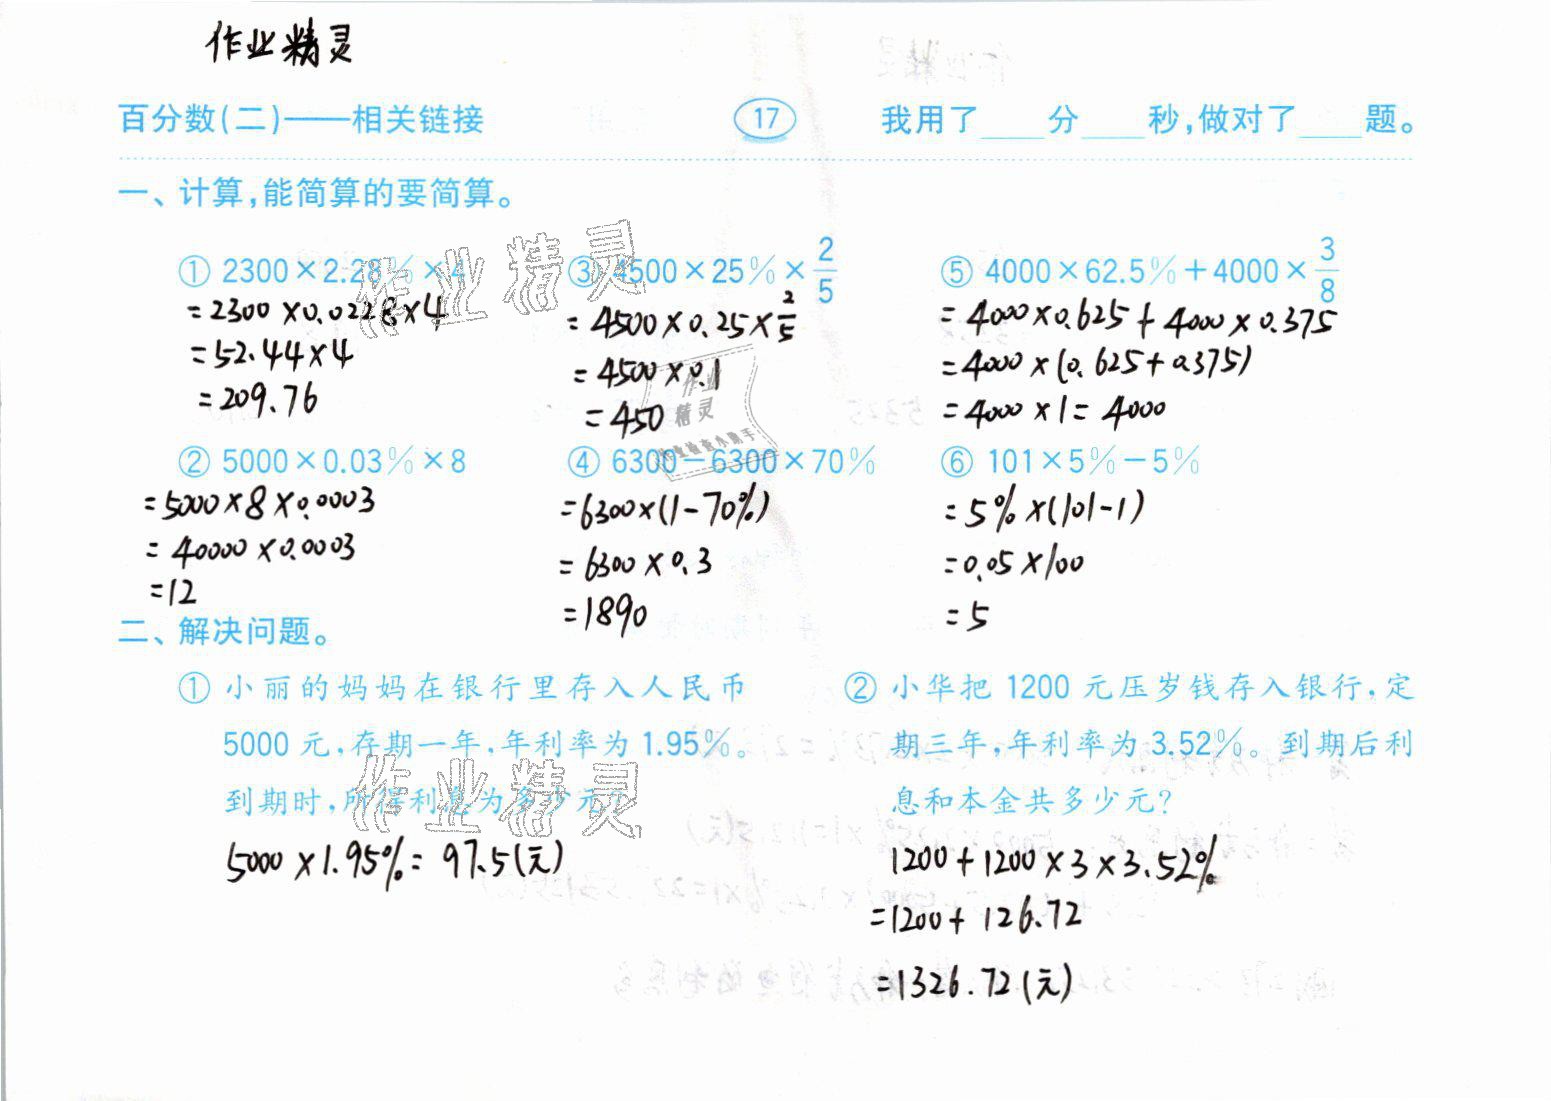 作业精灵
百分数(二)——相关链接 17 我用了____分____秒,做对了____题。
一、计算,能简算的要简算。
① 2300×2.28%×4
=2300×0.0228×4
=52.44×4
=209.76
② 5000×0.03%×8
=5000×8×0.0003
=40000×0.0003
=12
③ 4500×25%×2/5
=4500×0.25×2/5
=4500×0.1
=450
④ 6300-6300×70%
=6300×(1-70%)
=6300×0.3
=1890
⑤ 4000×62.5%+4000×3/8
=4000×0.625+4000×0.375
=4000×(0.625+0.375)
=4000×1=4000
⑥ 101×5%-5%
=5%×(101-1)
=0.05×100
=5
二、解决问题。
① 小丽的妈妈在银行里存入人民币
5000元,存期一年,年利率为1.95%。
到期时,所得利息为多少元?
5000×1.95%=97.5(元)
② 小华把1200元压岁钱存入银行,定
期三年,年利率为3.52%。到期后利
息和本金共多少元?
1200+1200×3×3.52%
=1200+126.72
=1326.72(元)
作业精灵
作业
精灵
作业检查小助手
作业精灵